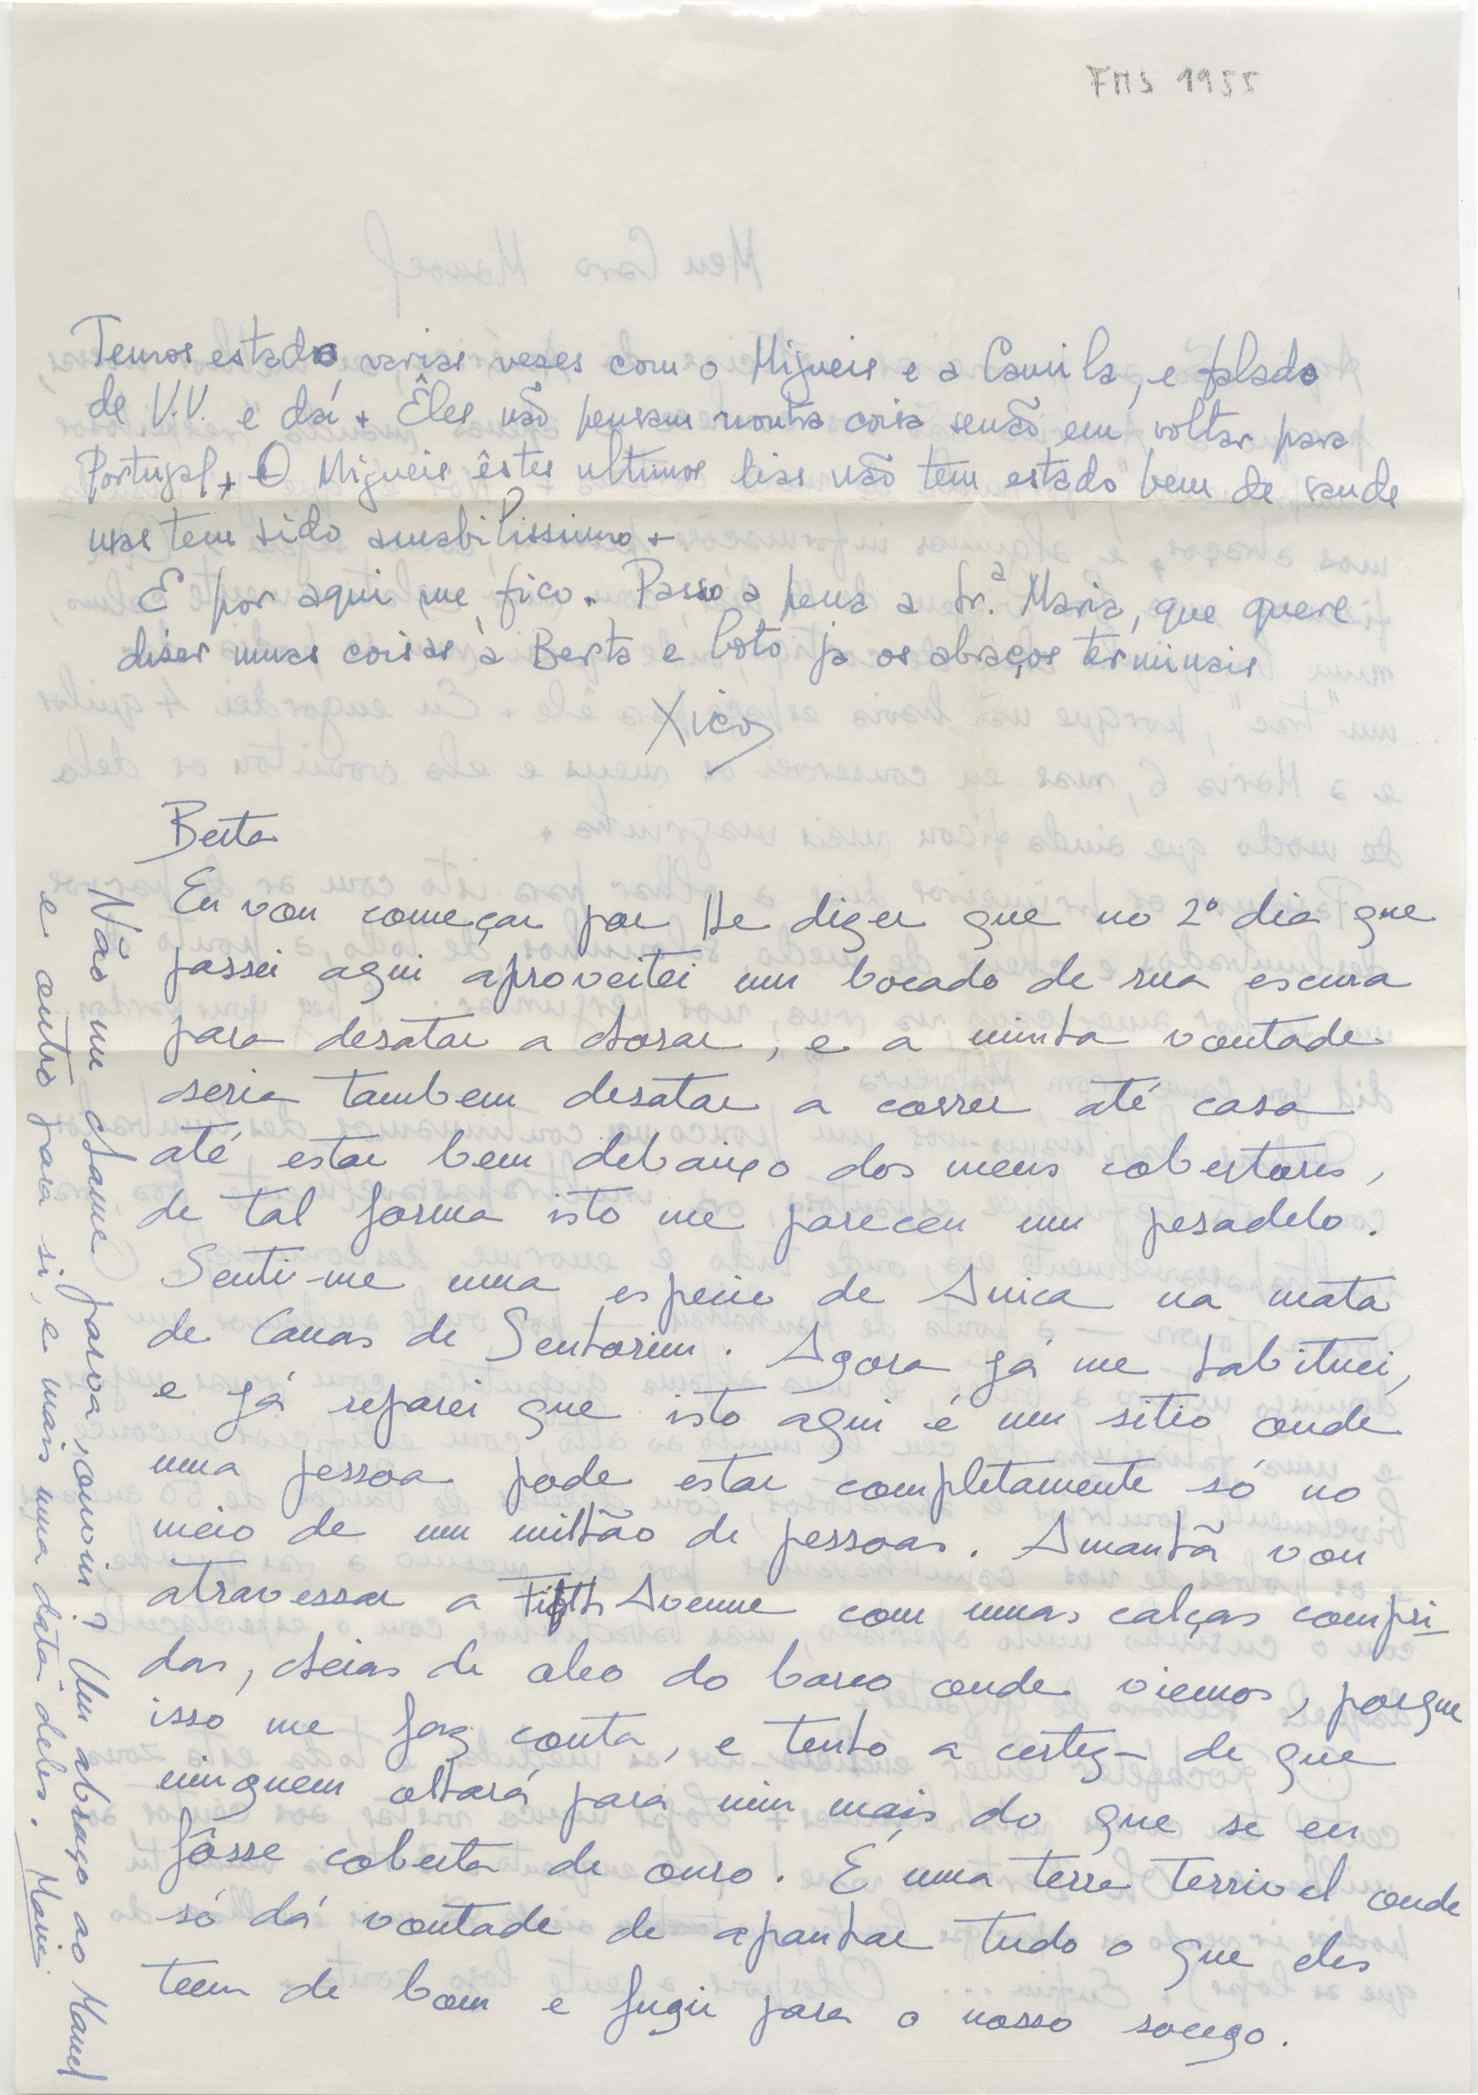 FMS 1955
Temos estado varias vezes com o Migueis e a Camila, e falado
de V.V. e daí + Êles não pensam noutra coisa senão em voltar para
Portugal + O Migueis êstes ultimos dias não tem estado bem de saude
mas tem sido amabilissimo +
E por aqui me fico. Passo a pena a Sr.ª Maria, que quere
dizer umas coisas à Berta e boto já os abraços terminais
Xico
Berta
Eu vou começar por lhe dizer que no 2º dia que
passei aqui aproveitei um bocado de rua escura
para desatar a chorar, e a minha vontade
seria tambem desatar a correr até casa
até estar bem debaixo dos meus cobertores,
de tal forma isto me pareceu um pesadelo.
Senti-me uma especie de Anica na mata
de Canas de Senhorim. Agora já me habituei,
e já reparei que isto aqui é um sitio onde
uma pessoa pode estar completamente só no
meio de um milhão de pessoas. Amanhã vou
atravessar a Fifth Avenue com umas calças compri-
das, cheias de oleo do barco onde viemos, porque
isso me faz conta, e tenho a certeza de que
ninguem olhará para mim mais do que se eu
fôsse coberta de ouro. É uma terra terrivel onde
só dá vontade de apanhar tudo o que eles
teem de bom e fugir para o nosso socego.
Não me chame parva, ouviu? Um abraço ao Manel
e outro para si, e mais uma data deles. Maria